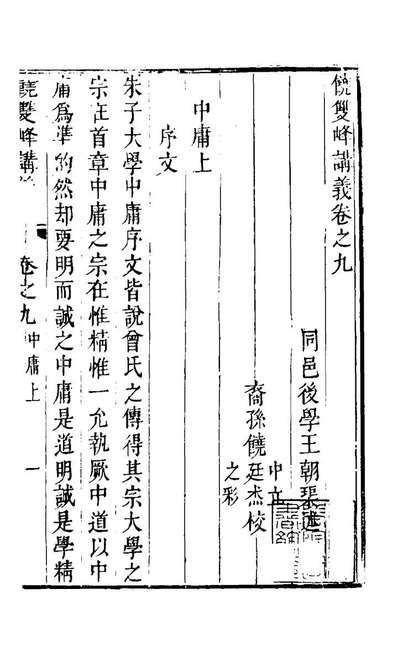 饒雙峰講義卷之九
同邑後學王朝㻮述
裔孫饒廷杰校
中立
之彩
中庸上
序文
朱子大學中庸序文皆說曾氏之傳得其宗大學之
宗在首章中庸之宗在惟精惟一允執厥中道以中
庸爲準的然却要明而誠之中庸是道明誠是學精
饒雙峰講
卷之九中庸上
一